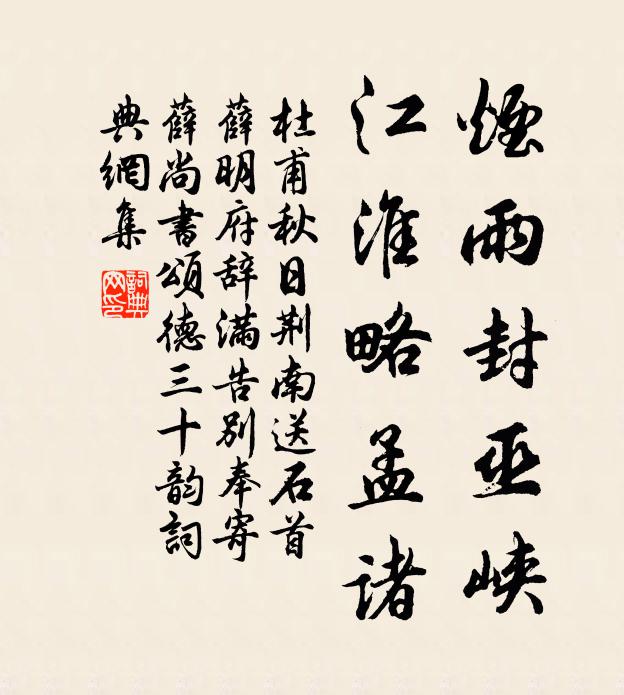 煙雨封巫峽
江淮略孟諸
杜甫秋日荆南送石首
薛明府辞满告别奉寄
薛尚書颂德三十韵詞
典網集
詞典
网印